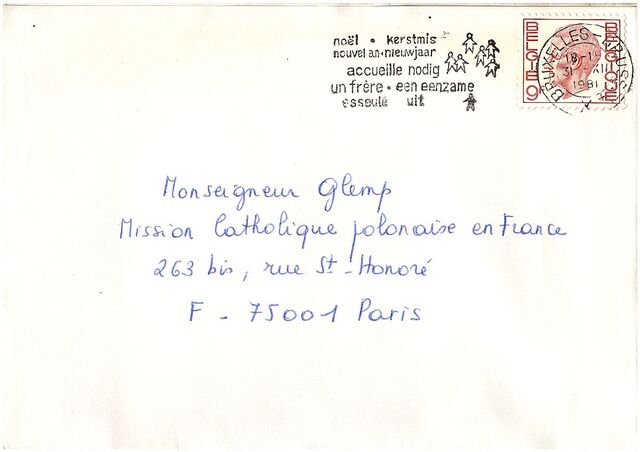 noël • kerstmis
nouvel an • nieuwjaar
accueille nodig
un frère • een eenzame
esseulé uit
BELGIE 9
BELGIQUE
BRUXELLES
18-1
31 XII
1981
Monseigneur Glemp
Mission Catholique polonaise en France
263 bis, rue St-Honoré
F - 75001 Paris